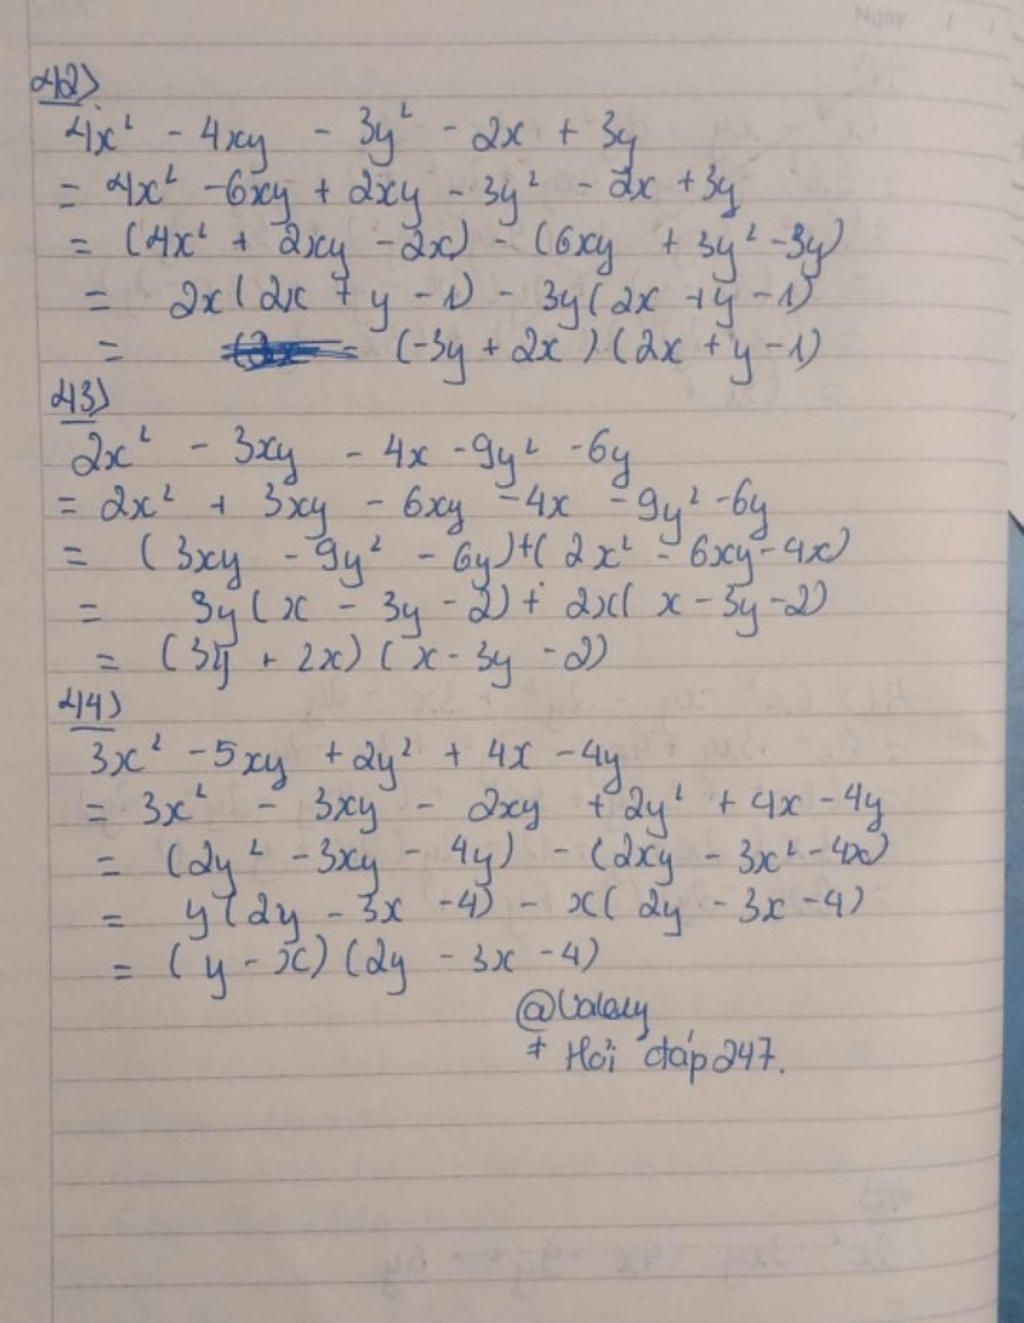 Ngày / /
42)
4x² - 4xy - 3y² - 2x + 3y
= 4x² - 6xy + 2xy - 3y² - 2x + 3y
= (4x² + 2xy - 2x) - (6xy + 3y² - 3y)
= 2x(2x + y - 1) - 3y(2x + y - 1)
= (-3y + 2x).(2x + y - 1)
43)
2x² - 3xy - 4x - 9y² - 6y
= 2x² + 3xy - 6xy - 4x - 9y² - 6y
= (3xy - 9y² - 6y) + (2x² - 6xy - 4x)
= 3y(x - 3y - 2) + 2x(x - 3y - 2)
= (3y + 2x)(x - 3y - 2)
44)
3x² - 5xy + 2y² + 4x - 4y
= 3x² - 3xy - 2xy + 2y² + 4x - 4y
= (2y² - 3xy - 4y) - (2xy - 3x² - 4x)
= y(2y - 3x - 4) - x(2y - 3x - 4)
= (y - x)(2y - 3x - 4)
@Valery
# Hỏi đáp 247.